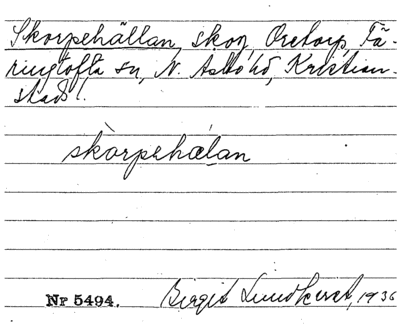 Skorpehällan, skog, Oretorp, Fä-
ringtofta sn, N. Åsbo hd, Kristian-
stads l.
skòrpehæ̀lan
Nr 5494.
Birgit Lundkvist, 1936